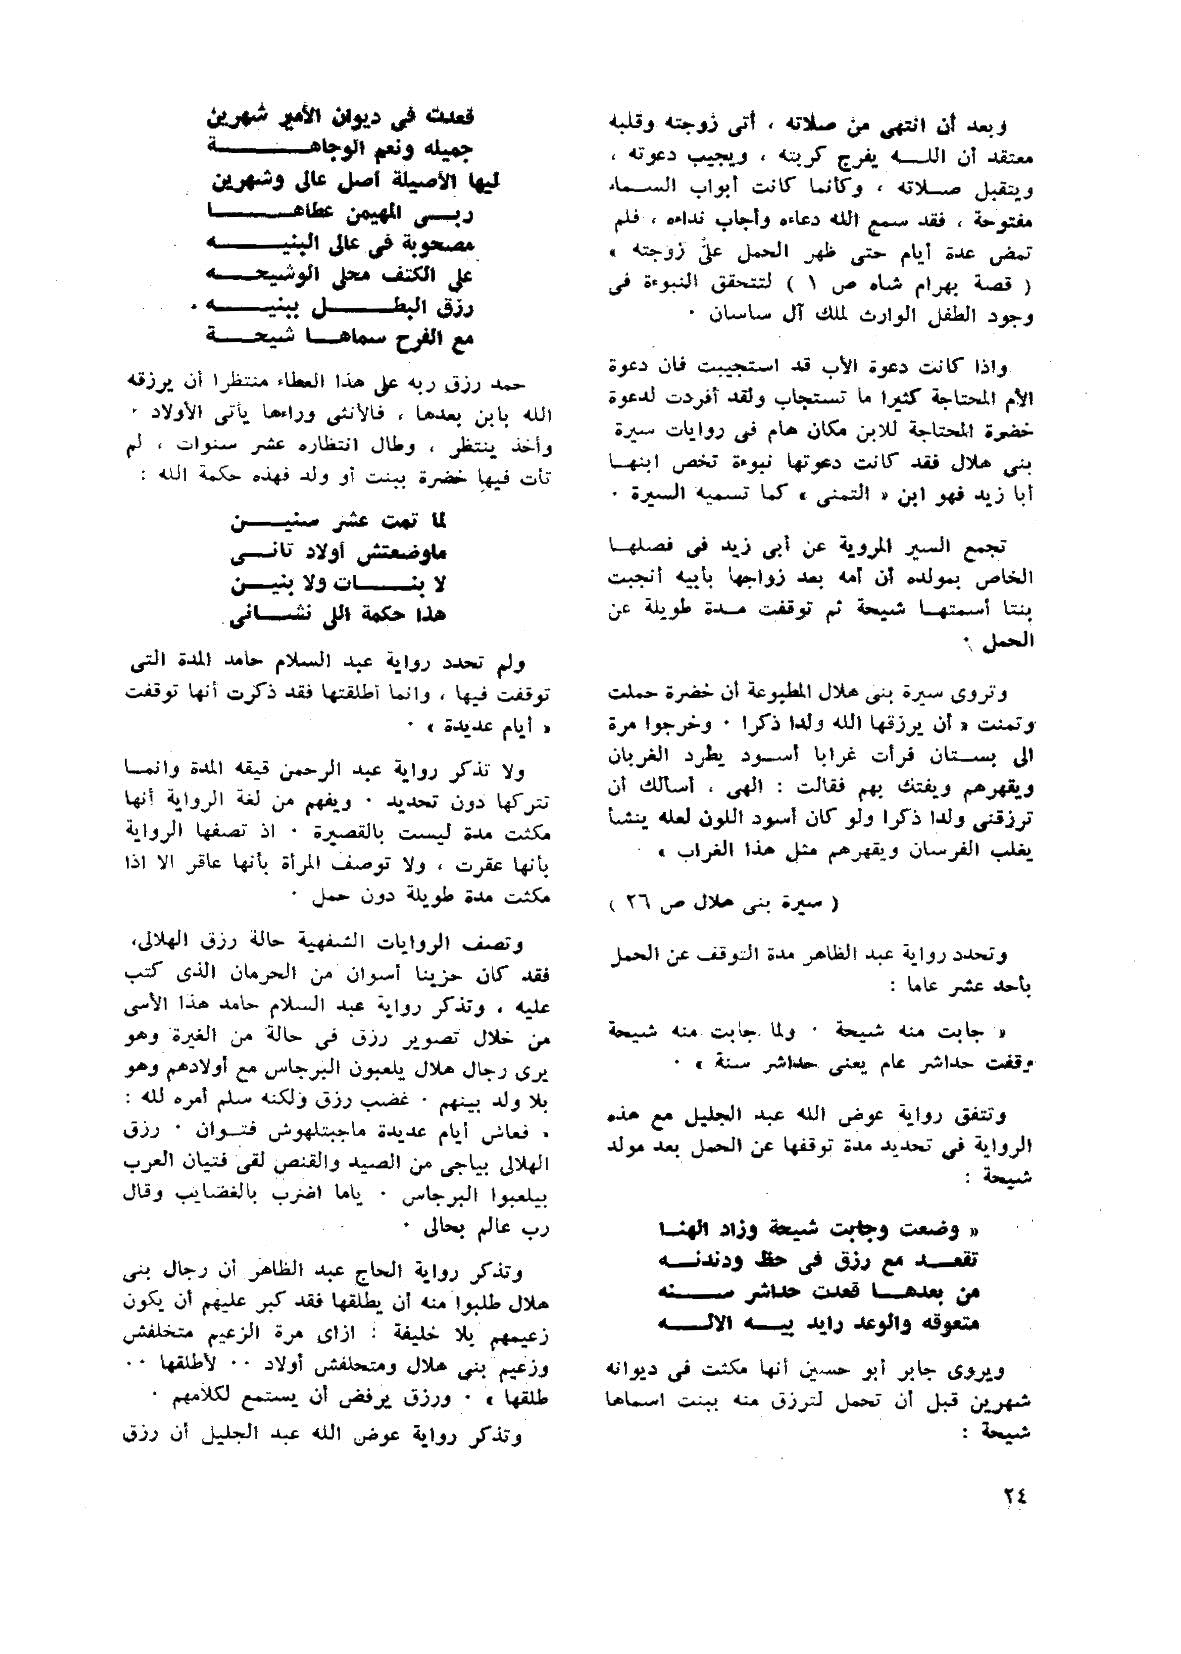 وبعد أن انتهى من صلاته ، أتى زوجته وقلبه
معتقد أن اللـــه يفرج كربته ، ويجيب دعوته ،
ويتقبل صـلاته ، وكأنما كانت أبواب السـماء
مفتوحة ، فقد سمع الله دعاءه وأجاب نداءه ، فلم
تمض عدة أيام حتى ظهر الحمل على زوجته »
( قصة بهرام شاه ص ١ ) لتتحقق النبوءة فى
وجود الطفل الوارث لملك آل ساسان ٠
واذا كانت دعوة الأب قد استجيبت فان دعوة
الأم المحتاجة كثيرا ما تستجاب ولقد أفردت لدعوة
خضرة المحتاجة للابن مكان هام فى روايات سيرة
بنى هلال فقد كانت دعوتها نبوءة تخص ابنهـا
أبا زيد فهو ابن « التمنى » كما تسميه السيرة ٠
تجمع السير المروية عن أبى زيد فى فصلهـا
الخاص بمولده أن أمه بعد زواجها بأبيه أنجبت
بنتا أسمتهـا شيحة ثم توقفت مـدة طويلة عن
الحمل ٠
وتروى سيرة بنى هلال المطبوعة أن خضرة حملت
وتمنت « أن يرزقها الله ولدا ذكرا ٠ وخرجوا مرة
الى بسـتان فرأت غرابا أسـود يطرد الغربان
ويقهرهم ويفتك بهم فقالت : الهى ، أسألك أن
ترزقنى ولدا ذكرا ولو كان أسود اللون لعله ينشأ
يغلب الفرسان ويقهرهم مثل هذا الغراب »
( سيرة بنى هلال ص ٢٦ )
وتحدد رواية عبد الظاهر مدة التوقف عن الحمل
بأحد عشر عاما :
« جابت منه شيحة ٠ ولما جابت منه شيحة
وقفت حداشر عام يعنى حداشر سنة » ٠
وتتفق رواية عوض الله عبد الجليل مع هذه
الرواية فى تحديد مدة توقفها عن الحمل بعد مولد
شيحة :
« وضعت وجابت شيحة وزاد الهنـا
تقعـــد مع رزق فى حظ ودندنـــه
من بعدهـــا قعدت حداشر ســـنه
متعوقه والوعد رايد بيـــه الالـــه
ويروى جابر أبو حسين أنها مكثت فى ديوانه
شهرين قبل أن تحمل لترزق منه ببنت اسماها
شيحة :
قعدت فى ديوان الأمير شهرين
جميله ونعم الوجاهـــــــة
ليها الأصيلة أصل عالى وشهرين
ربـــى المهيمن عطاهـــــــا
مصحوبة فى عالى البنيـــــه
على الكتف محلى الوشيحـــه
رزق البطـــــــل ببنيـــــه ٠
مع الفرح سماهـــا شيحـــة
حمد رزق ربه على هذا العطاء منتظرا أن يرزقه
الله بابن بعدها ، فالأنثى وراءها يأتى الأولاد ٠
وأخذ ينتظر ، وطال انتظاره عشر سنوات ، لم
تأت فيها خضرة ببنت أو ولد فهذه حكمة الله :
لما تمت عشر سنيـــن
ماوضعتش أولاد تانـــى
لا بنـــــات ولا بنيـــن
هذا حكمة اللى نشـــانى
ولم تحدد رواية عبد السلام حامد المدة التى
توقفت فيها ، وانما أطلقتها فقد ذكرت أنها توقفت
« أيام عديدة » ٠
ولا تذكر رواية عبد الرحمن قيقه المدة وانمـا
تتركها دون تحديد ٠ ويفهم من لغة الرواية أنها
مكثت مدة ليست بالقصيرة ٠ اذ تصفها الرواية
بأنها عقرت ، ولا توصف المرأة بأنها عاقر الا اذا
مكثت مدة طويلة دون حمل ٠
وتصف الروايات الشفهية حالة رزق الهلالى،
فقد كان حزينا أسوان من الحرمان الذى كتب
عليه ، وتذكر رواية عبد السلام حامد هذا الأسى
من خلال تصوير رزق فى حالة من الغيرة وهو
يرى رجال هلال يلعبون البرجاس مع أولادهم وهو
بلا ولد بينهم ٠ غضب رزق ولكنه سلم أمره لله :
« فعاش أيام عديدة ماجبتلهوش فتـوان ٠ رزق
الهلالى بياجى من الصيد والقنص لقى فتيان العرب
بيلعبوا البرجاس ٠ ياما اضرب بالغضايب وقال
رب عالم بحالى ٠
وتذكر رواية الحاج عبد الظاهر أن رجال بنى
هلال طلبوا منه أن يطلقها فقد كبر عليهم أن يكون
زعيمهم بلا خليفة : ازاى مرة الزعيم متخلفش
وزعيم بنى هلال ومتخلفش أولاد ٠٠ لأطلقها ٠٠
طلقها » ٠ ورزق يرفض أن يستمع لكلامهم ٠
وتذكر رواية عوض الله عبد الجليل أن رزق
٢٤